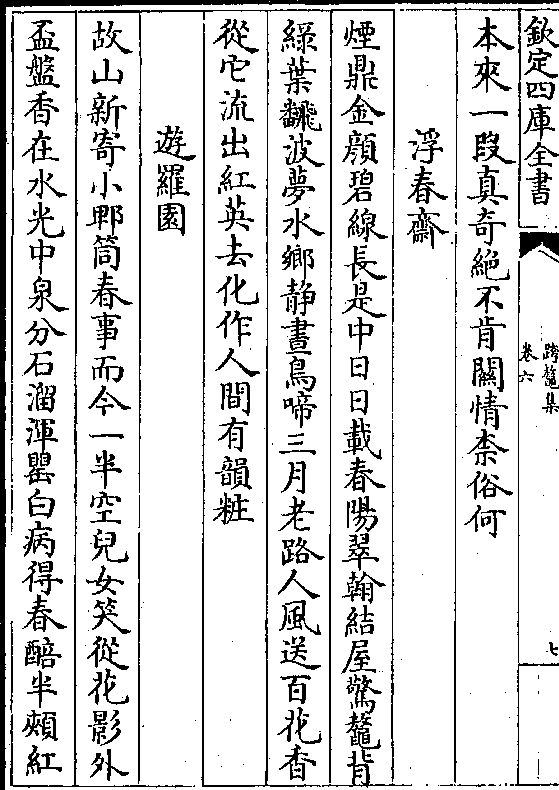 欽定四庫全書
跨鼇集
卷六
七
本來一叚真奇絶不肯關情柰俗何
浮春齋
煙鼎金顔碧線長是中日日載春陽翠翰結屋驚鼇背
緑葉飜波夢水鄉静晝鳥啼三月老路人風送百花香
從它流出紅英去化作人間有韻粧
遊羅園
故山新寄小郫筒春事而今一半空兒女笑從花影外
盃盤香在水光中泉分石溜渾罌白病得春醅半頰紅